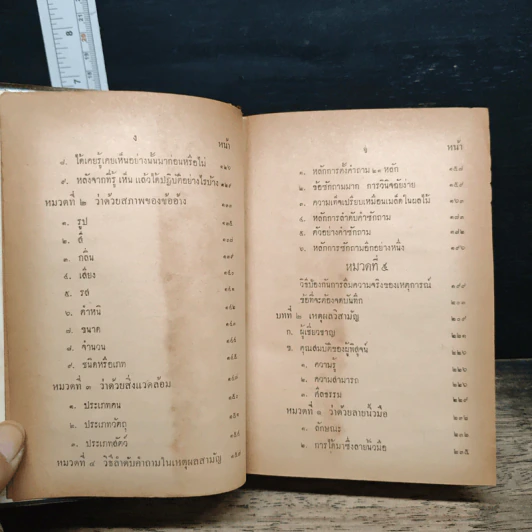 ง หน้า
๘. ได้เคยรู้เคยเห็นอย่างนั้นมาก่อนหรือไม่ ๑๒๖
๙. หลังจากที่รู้ เห็น แล้วได้ปฏิบัติอย่างไรบ้าง ๑๒๙
หมวดที่ ๒ ว่าด้วยสภาพของข้ออ้าง
๑. รูป
๒. สี
๓. กลิ่น
๔. เสียง
๕. รส
๖. ตำหนิ
๗. ขนาด
๘. จำนวน
๙. ชนิดหรือเภท
หมวดที่ ๓ ว่าด้วยสิ่งแวดล้อม
๑. ประเภทคน
๒. ประเภทวัตถุ
๓. ประเภทสัตว์
หมวดที่ ๔ วิธีลำดับคำถามในเหตุผลสามัญ
จ หน้า
๑. หลักการตั้งคำถาม ๒๑ หลัก ๑๕๘
๒. ข้อซักถามมาก การวินิจฉัยง่าย ๑๕๙
๓. ความเท็จเปรียบเหมือนเมล็ดในผลไม้
๔. หลักการลำดับคำซักถาม ๑๗๑
๕. ตัวอย่างคำซักถาม
๖. หลักการซักถามอีกอย่างหนึ่ง ๑๙๖
หมวดที่ ๕
วิธีป้องกันการลืมความจริงของเหตุการณ์ ๑๙๙
ข้อที่จะต้องจดบันทึก
บทที่ ๒ เหตุผลวิสามัญ
ก. ผู้เชี่ยวชาญ ๒๒๑
ข. คุณสมบัติของผู้พิสูจน์ ๒๒๖
๑. ความรู้ ๒๒๖
๒. ความสามารถ ๒๒๖
๓. ศีลธรรม ๒๒๙
หมวดที่ ๑ ว่าด้วยลายนิ้วมือ ๒๓๒
๑. ลักษณะ ๒๓๒
๒. การได้มาซึ่งลายนิ้วมือ ๒๓๕